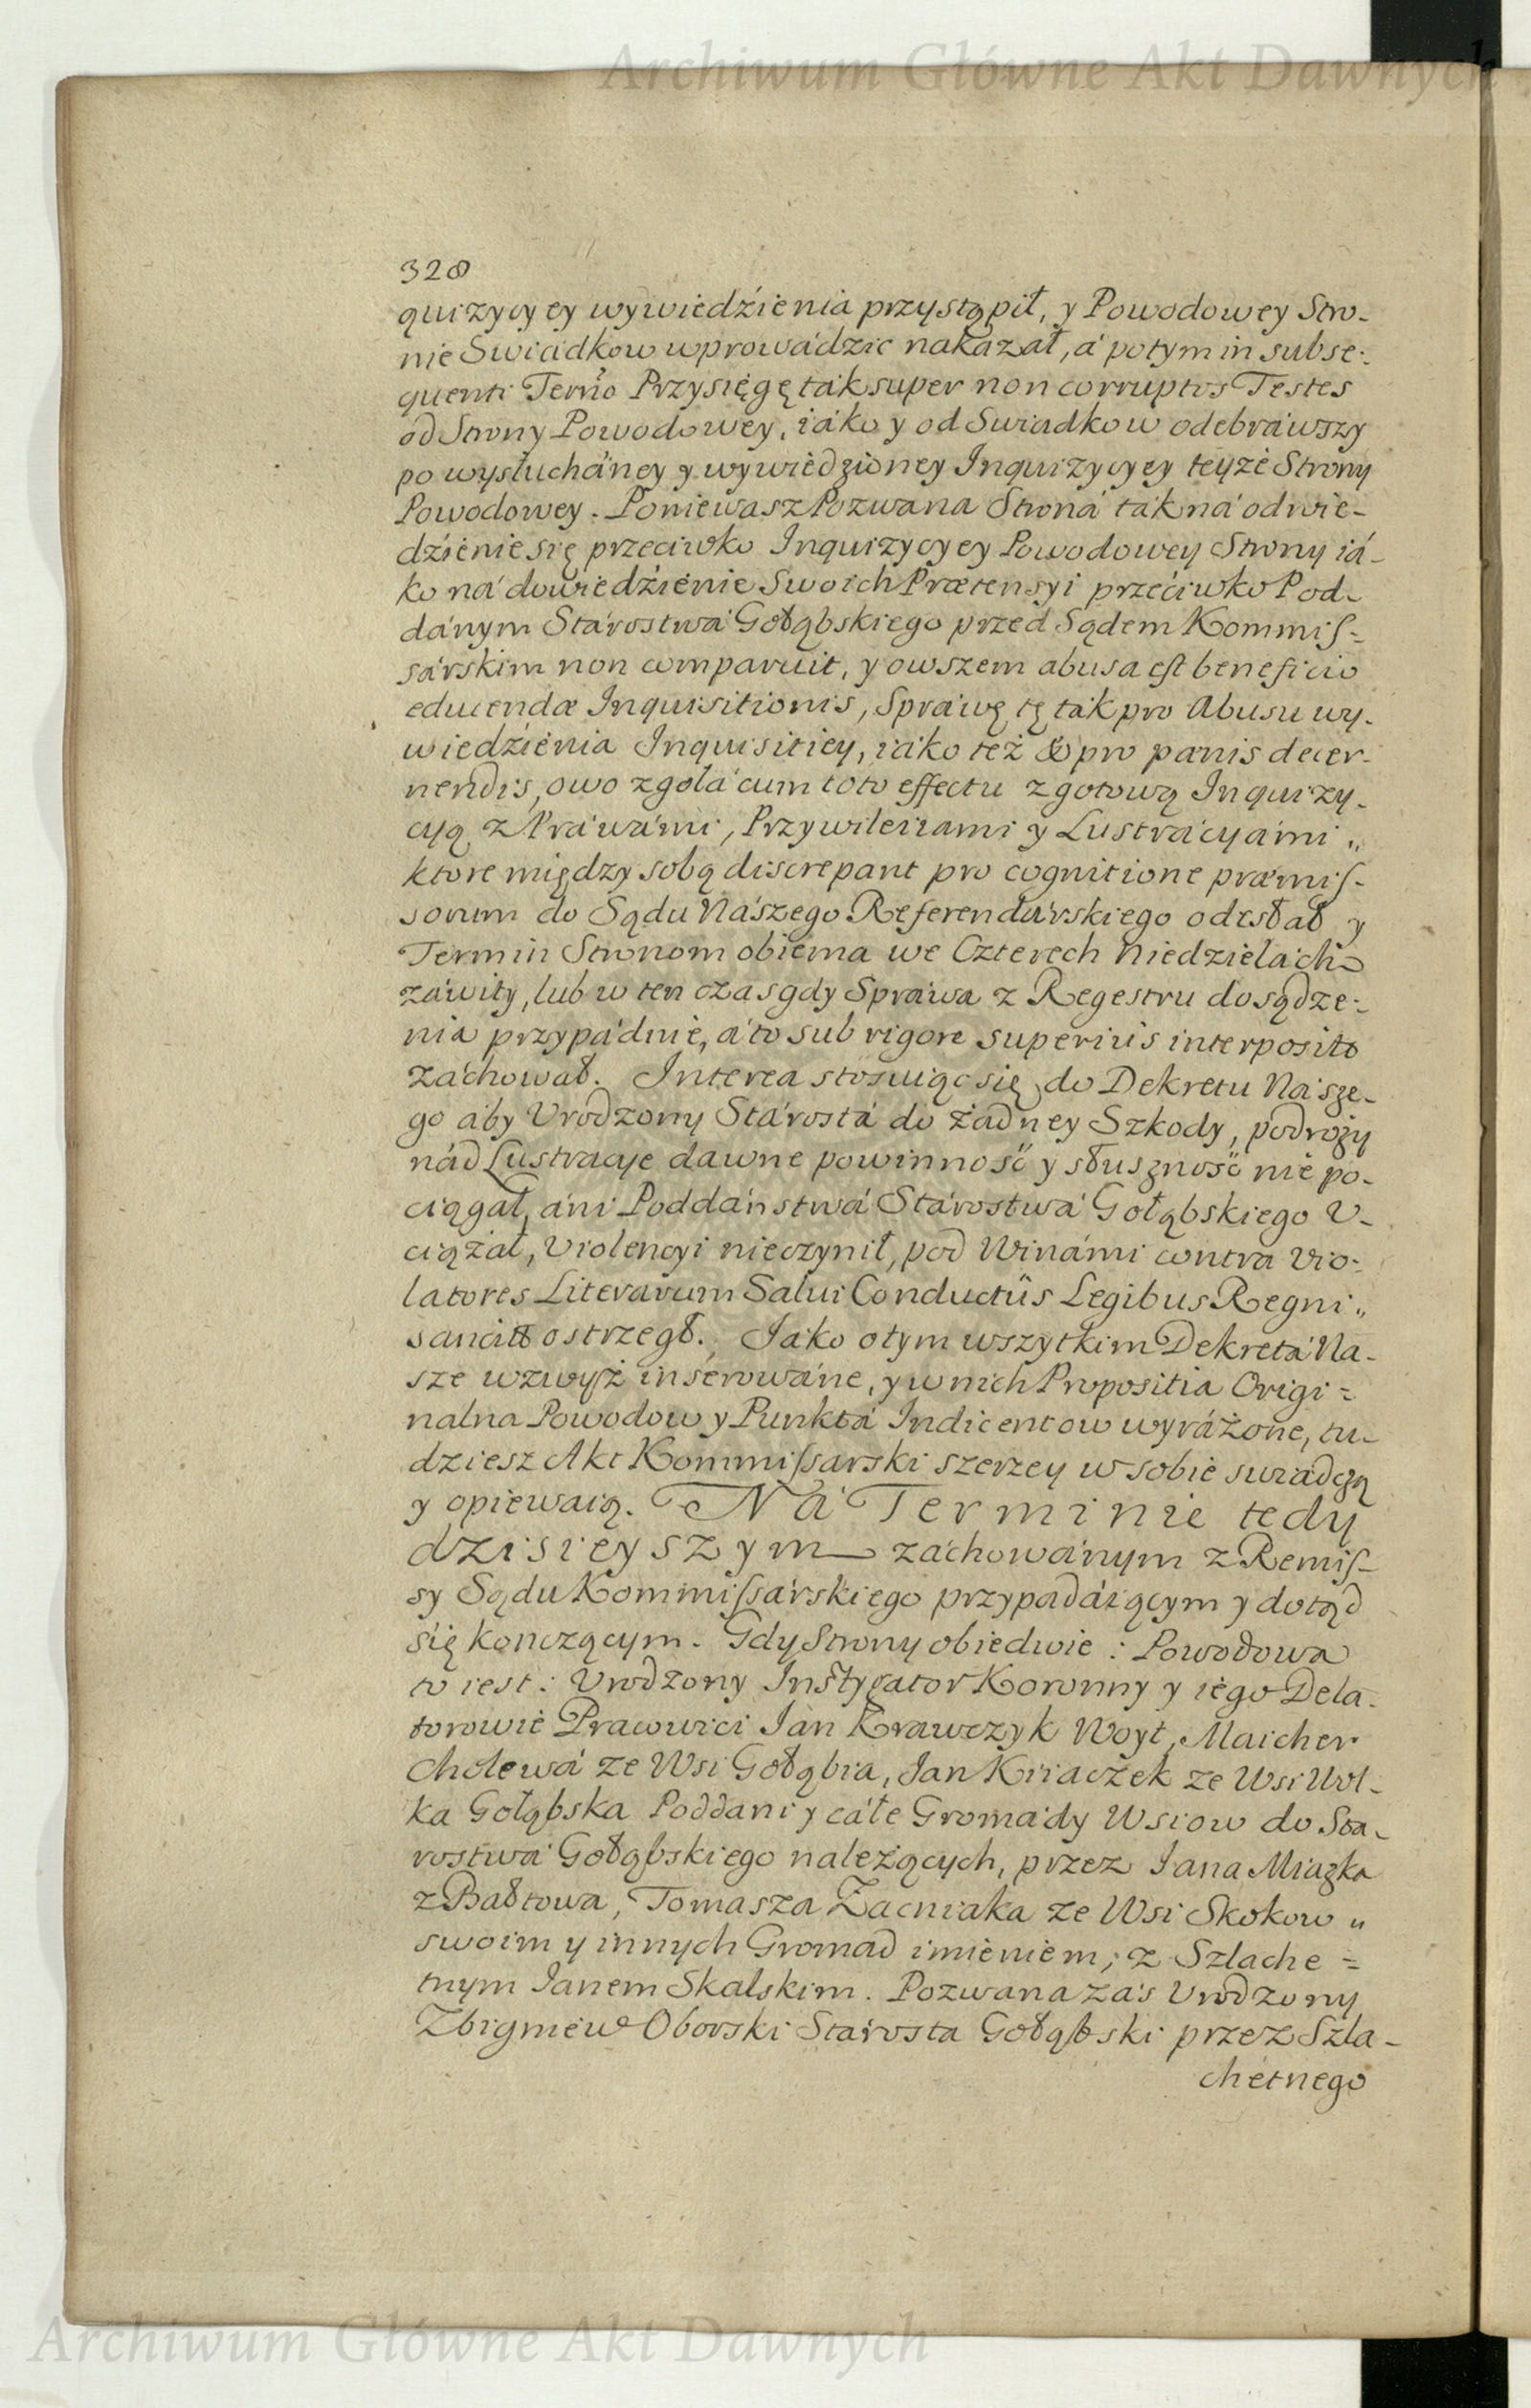 Archiwum Główne Akt Dawnych
328
quizycyey wywiedźienia przystąpił, y Powodowey Stro-
nie Swiadkow wprowádzic nakazał, á potym in subse-
quenti Termo Przysięgę ták super non corruptos Testes
od Strony Powodowey, iáko y od Swiadkow odebráwszy
po wysłucháney y wywiedzioney Inquizycyey teyże Strony
Powodowey. Poniewasz Pozwana Stroná ták ná odwie-
dźienie się przeciwko Inquizycyey Powodowey Strony iá-
ko ná dowiedźienie Swoich Prætensyi przećiwko Pod-
dánym Stárostwá Gołąbskiego przed Sądem Kommis-
sárskim non comparuit, y owszem abusa est beneficio
educendæ Inquisitionis, Spráwę tę ták pro Abusu wy-
wiedźienia Inquisitiey, iáko też & pro pœnis decer-
nendis, owo zgołá cum toto effectu z gotową Inquizy-
cyą z Práwámi, Przywileiami y Lustrácyámi „
ktore między sobą discrepant pro cognitione præmis-
sorum do Sądu Nászego Referendárskiego odesłał y
Termin Stronom obiema we Czterech Niedzielách
záwity, lub w ten czas gdy Spráwa z Regestru do sądze-
nia przypádnie, á to sub rigore superius interposito
záchował. Interea stosuiąc się do Dekretu Násze-
go áby Urodzony Stárostá do żadney Szkody, podroży
nád Lustracye dawne powinność y słuszność nie po-
ciągał, áni Poddáństwá Stárostwá Gołąbskiego U-
ciążał, Violencyi nieczynił, pod Winámi contra Vio-
latores Literarum Salvi Conductûs Legibus Regni „
sancitis ostrzegł. Jáko o tym wszytkim Dekretá Na-
sze wzwysz inserowáne, y w nich Propositia Origi-
nalna Powodow y Punktá Indicentow wyráżone, tu-
dziesz Akt Kommissarski szerzey w sobie swiadczą
y opiewaią. Ná Terminie tedy
dzisieyszym záchowánym z Remis-
sy Sądu Kommissárskiego przypadáiącym y dotąd
się kończącym. Gdy Strony obiedwie: Powodowa
to iest: Urodzony Instygator Koronny y iego Dela-
torowie Pracowici Jan Krawczyk Woyt, Maicher
Cholewá ze Wsi Gołąbia, Jan Kiiaczek ze Wsi Wol-
ka Gołąbska Poddani y cáłe Gromády Wsiow do Sta-
rostwá Gołąbskiego należących, przez Jana Miazka
z Bałtowa, Tomasza Zacniaka ze Wsi Skokow „
swoim y innych Gromad imieniem, z Szlache-
tnym Janem Skalskim. Pozwana zaś Urodzony
Zbigniew Oborski Stárosta Gołąbski przez Szla-
chetnego
Archiwum Główne Akt Dawnych